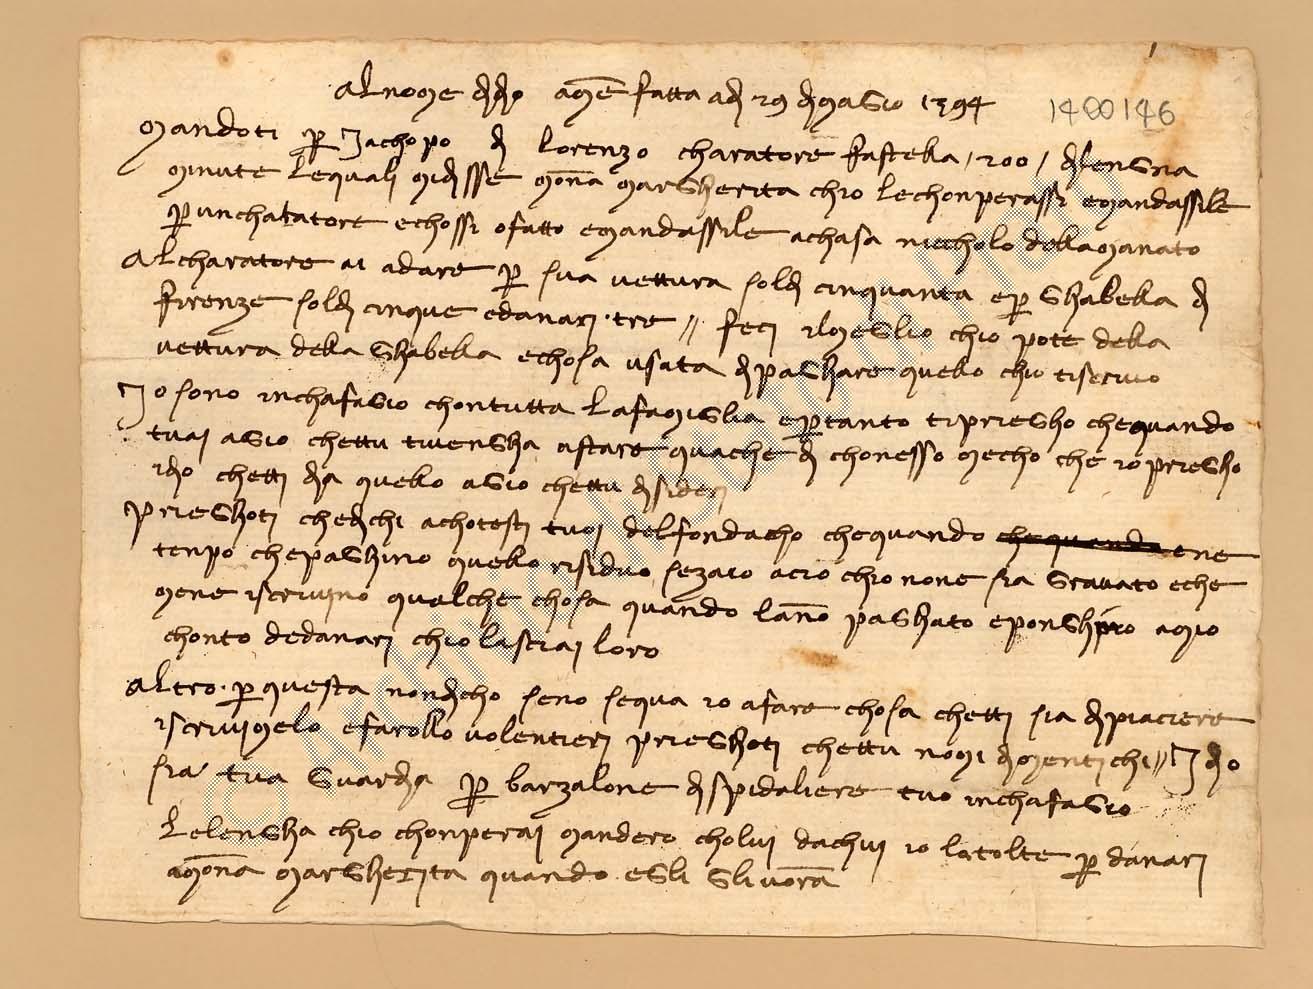 Al nome di dio amē fatta a di 29 di magio 1394
1400146
mandoti p Jachopo di lorenzo charatore fastella /200/ di lengna
minute lequali mi disse mōna margherita chio le chonperassi e mandassile
p un chatatore e chossi o fatto e mandassile a chasa nicholo dellamanato
Al charatore ai a dare p sua vettura soldi cinquanta e p ghabella di
firenze soldi cinque e danari tre // feci il meglio chio pote della
vettura della ghabella e chosa usata di paghare quello chio ti scrivo
Jo sono in chafagio chon tutta la famiglia e p tanto ti priegho che quando
tu ai agio chettu ti vengha a stare qua che di chonesso mecho che io priegho
idio chetti dia quello agio chettu disideri
Prieghoti che dichi a chotesti tuoi del fondacho che quando che quando ene
tenpo che paghino quello risiduo sezaio acio chio non e sia gravato e che
mene iscrivino qualche chosa quando lāno paghato e ponghino a mio
chonto de danari chio lasciai loro
Altro p questa non dicho seno se qua io a fare chosa chetti sia di piaciere
iscrivimelo e farollo volentieri prieghoti chettu nomi dimentichi // Idio
sia tua guardia p barzalone di spidaliere tuo in chafagio
Le lengha chio chonperai mandero cholui da chui io la tolte p danari
a mōna margherita quando egli gli vorā